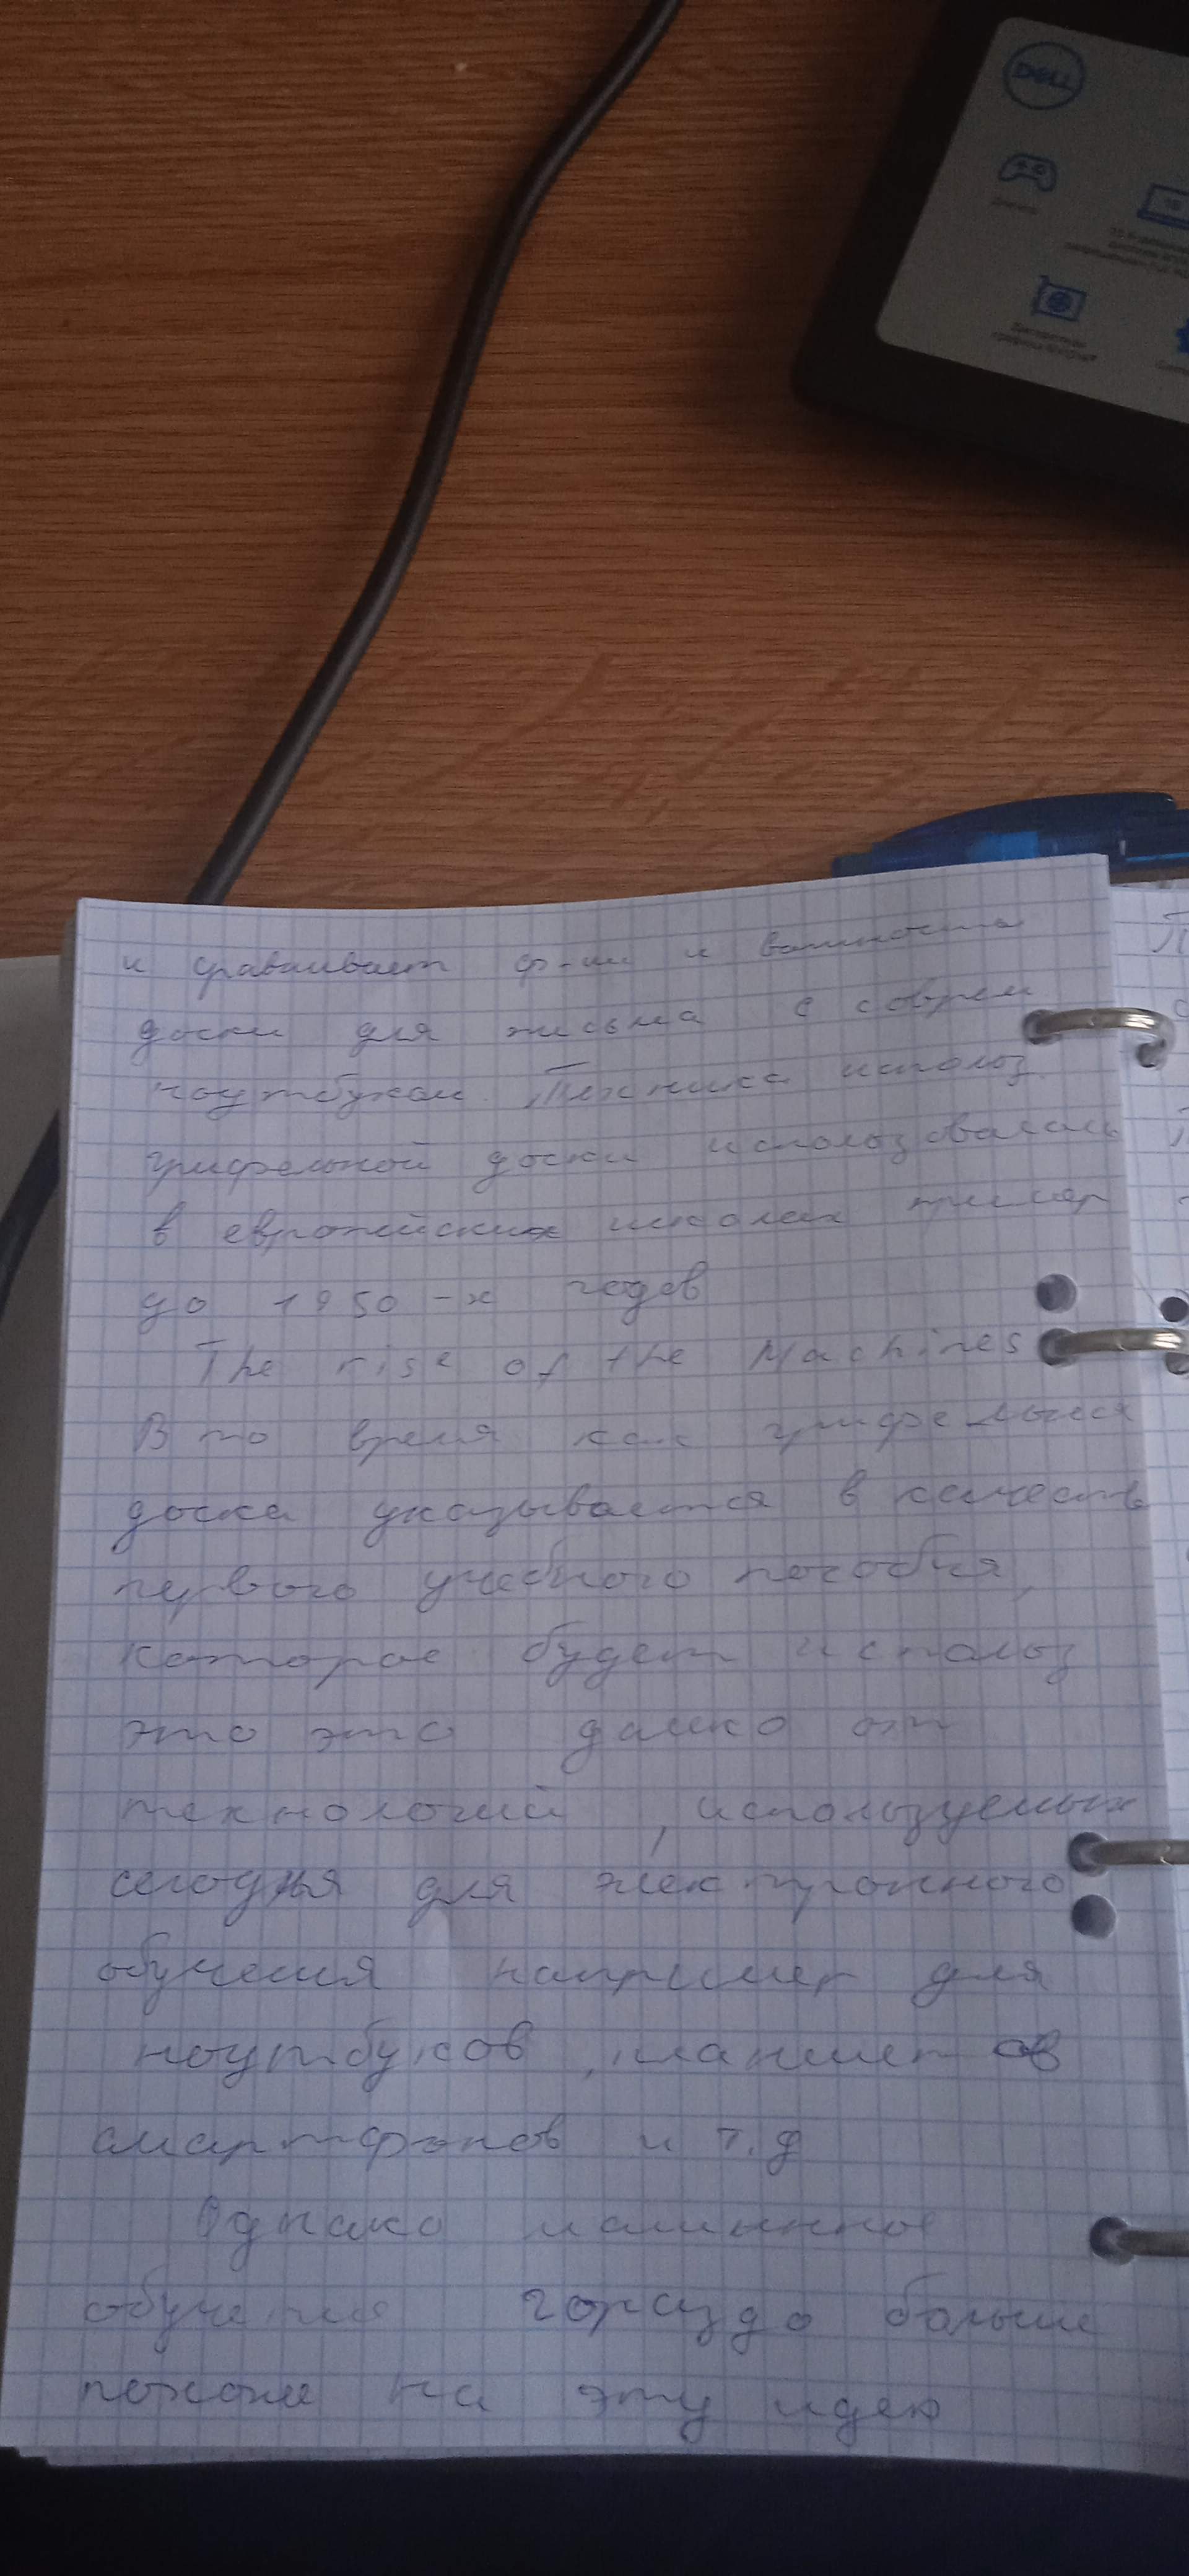 DELL
и сравнивает ф-ии и важность
доски для письма с соврем
ноутбуком. Техника использ.
грифельной доски использовалась
в европейских школах пример
до 1950-х годов
The rise of the Machines
В то время как грифельная
доска указывается в качеств
первого учебного пособия,
которое будет использ
это это далко от
технологий, используемых
сегодня для электронного
обучения например для
ноутбуков, планшетов
смартфонов и т.д
Однако машинное
обучения гораздо больше
похоже на эту идею